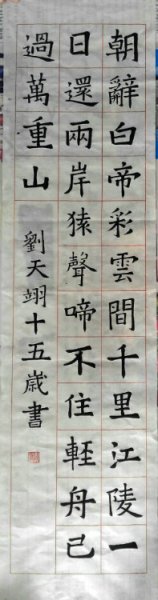 朝辭白帝彩雲間千里江陵一
日還兩岸猿聲啼不住輕舟已
過萬重山
劉天翊十五歲書